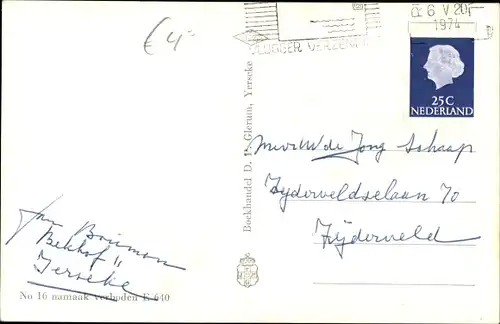 € 4-
6 V 20
1974
VLUGGER VERZENDING
25C
NEDERLAND
Boekhandel D. P. Glerum, Yerseke
de Jong Schaap
Zijderveldselaan 70
Zijderveld
Jan Bouman
Yerseke
No 16 namaak verboden E 640